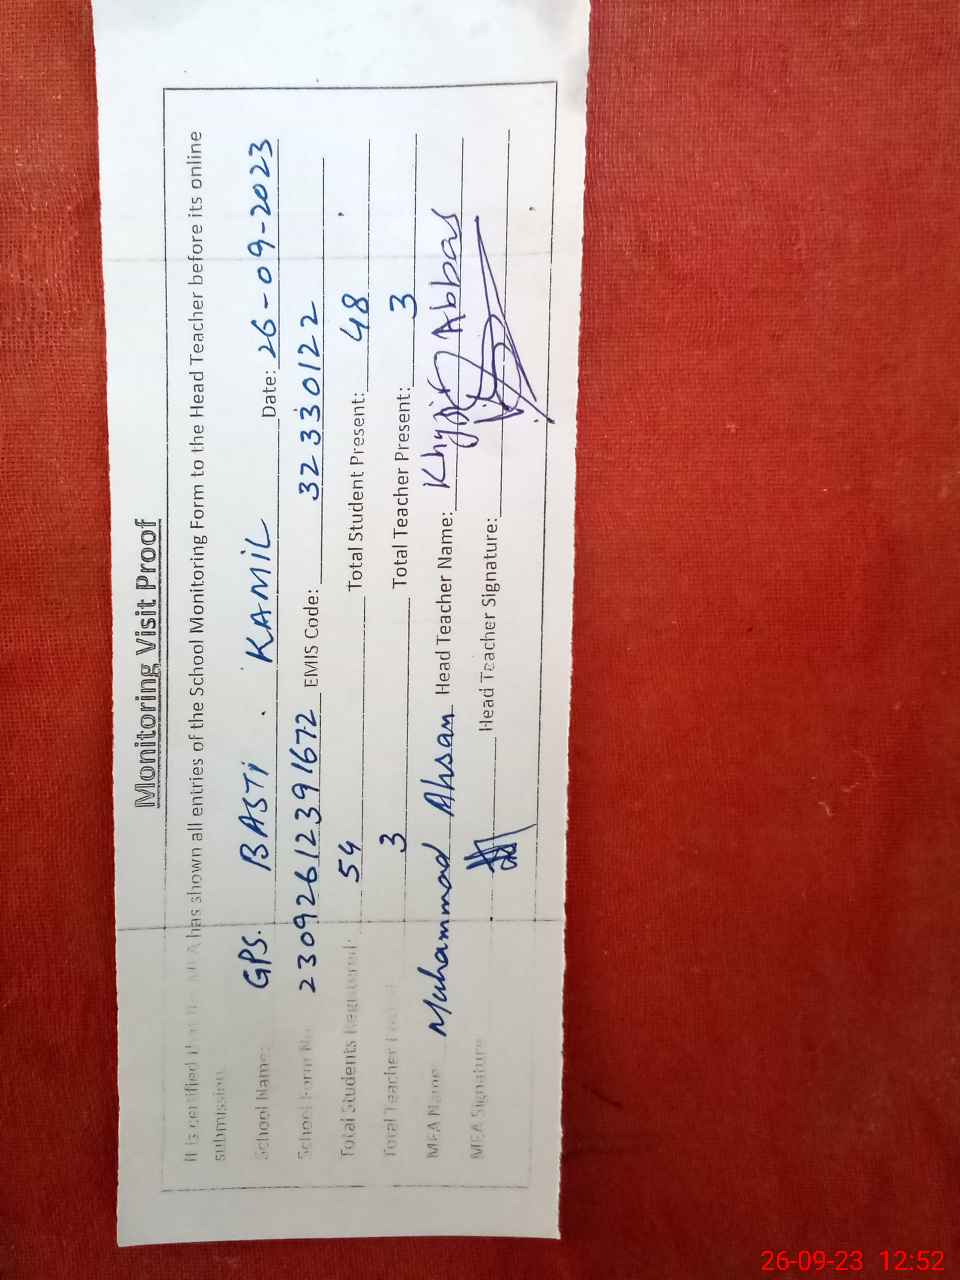 Monitoring Visit Proof
It is certified that the MEA has shown all entries of the School Monitoring Form to the Head Teacher before its online
submission.
School Name: GPS. BASTI KAMIL Date: 26-09-2023
School Form No. 2309261239 1672 EMIS Code: 32330122
Total Students Registered: 54 Total Student Present: 48
Total Teacher 3 Total Teacher Present: 3
MEA Name: Muhammad Ahsan Head Teacher Name: Abbas
MEA Signature Head Teacher Signature:
26-09-23 12:52